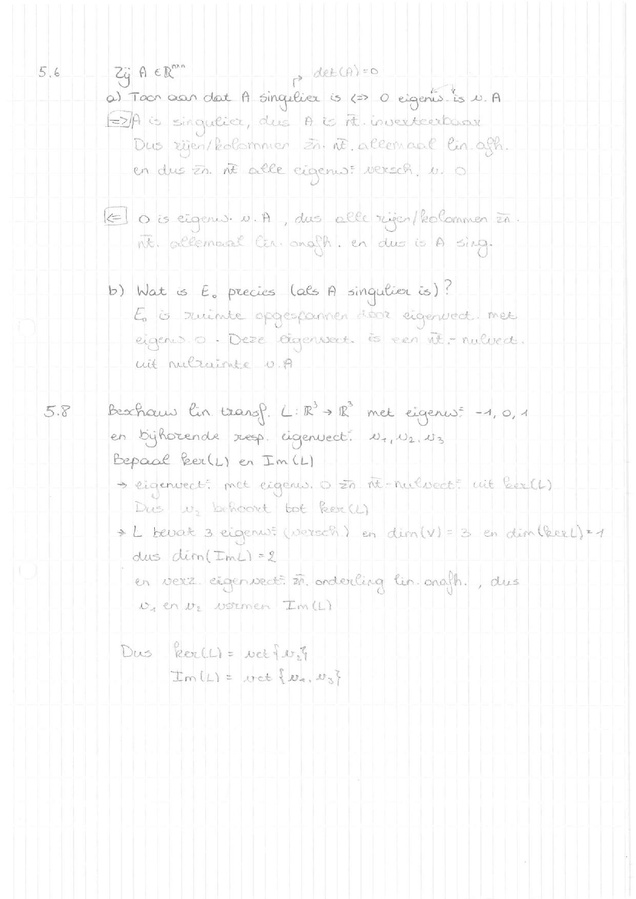 5.6 Zij A ∈ ℝⁿˣⁿ
det(A)=0
a) Toon aan dat A singulier is <=> 0 eigenw. is v. A
=> A is singulier, dus A is nt. inverteerbaar
Dus rijen/kolommen zn. nt. allemaal lin. afh.
en dus zn. nt alle eigenwn versch. v. 0
<= 0 is eigenw. v. A, dus alle rijen/kolommen zn.
nt. allemaal lin. onafh. en dus is A sing.
b) Wat is E₀ precies (als A singulier is)?
E₀ is ruimte opgespannen door eigenvect. met
eigenw. 0. Deze eigenvect. is een nt.-nulvect.
uit nulruimte v. A
5.8 Beschouw lin transf. L: ℝ³ → ℝ³ met eigenwn -1, 0, 1
en bijhorende resp. eigenvect. v₁, v₂, v₃
Bepaal ker(L) en Im(L)
→ eigenvectn met eigenw. 0 zn nt-nulvectn uit ker(L)
Dus v₂ behoort tot ker(L)
→ L bevat 3 eigenwn (versch) en dim(V) = 3 en dim(kerL)=1
dus dim(ImL) = 2
en verz. eigenvectn zn. onderling lin. onafh., dus
v₁ en v₂ vormen Im(L)
Dus ker(L) = vct {v₂}
Im(L) = vct {v₁, v₃}